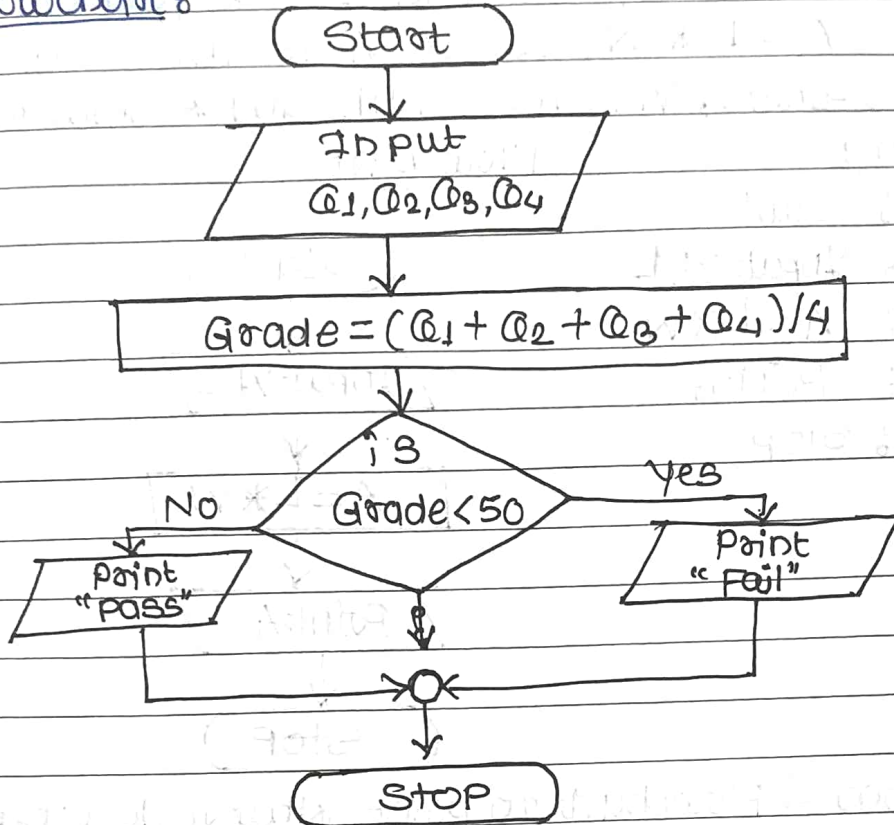 Start
Input
Q1, Q2, Q3, Q4
Grade = (Q1 + Q2 + Q3 + Q4) / 4
is
Grade < 50
No
Yes
Print
"PASS"
Print
"Fail"
STOP